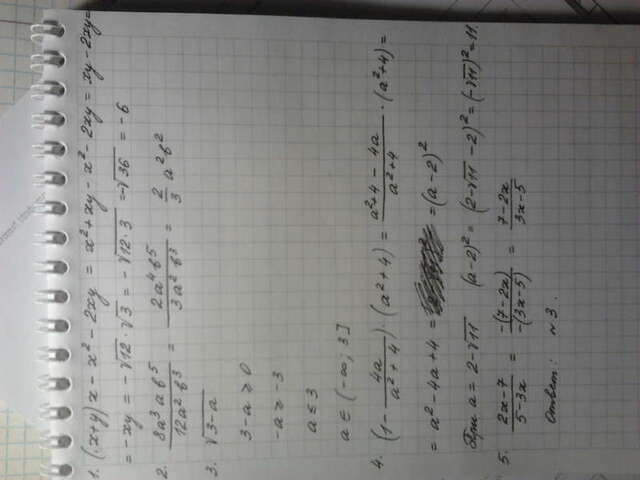 1. (x+y)x - x² - 2xy = x² + xy - x² - 2xy = xy - 2xy =
= -xy = -√12 √3 = -√12·3 = -√36 = -6
2. 8a³ab⁵/12a²b³ = 2a⁴b⁵/3a²b³ = 2/3 a²b²
3. √3-a
3-a ≥ 0
-a ≥ -3
a ≤ 3
a ∈ (-∞; 3]
4. (1 - 4a/a²+4) · (a²+4) = a²+4-4a/a²+4 · (a²+4) =
= a² - 4a + 4 = (a-2)²
При a = 2-√11 (a-2)² = (2-√11-2)² = (-√11)² = 11.
5. 2x-7/5-3x = -(7-2x)/-(3x-5) = 7-2x/3x-5
Ответ: №3.